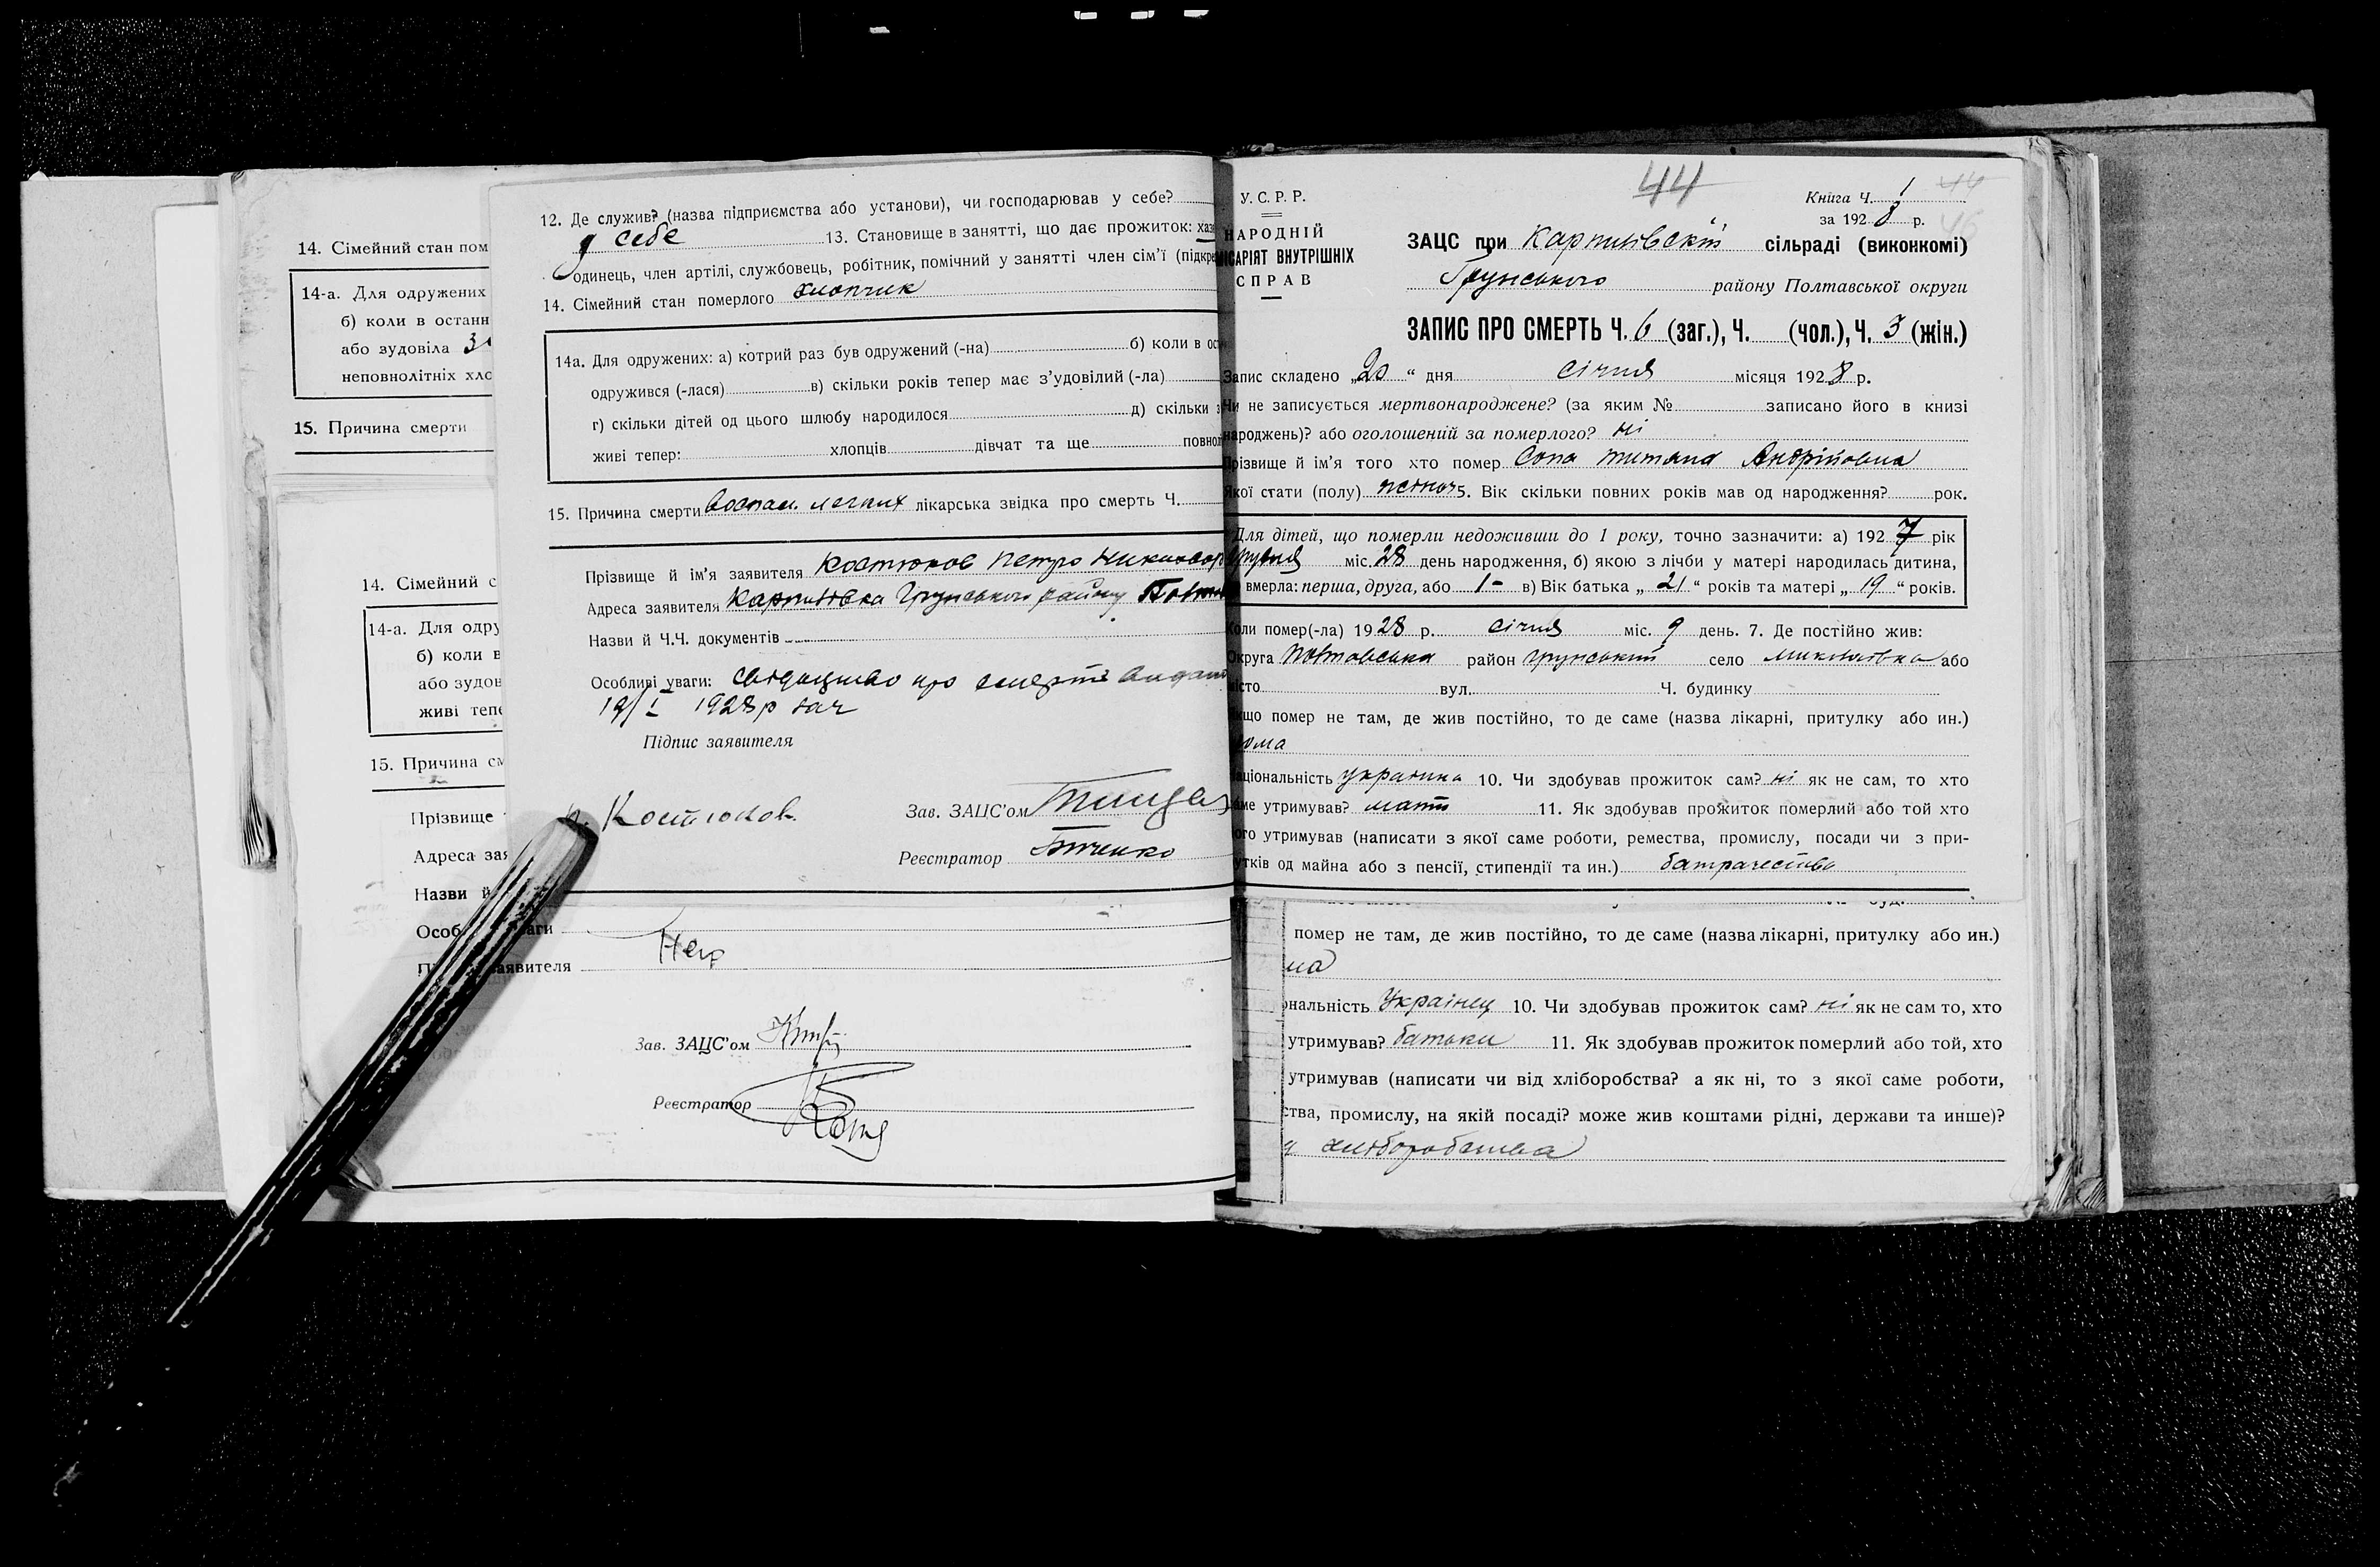 14. Сімейний стан пом
14-а. Для одружених
б) коли в останн
або зудовіла
неповнолітніх хло
15. Причина смерти
14. Сімейний с
14-а. Для одру
б) коли в
або зудов
живі тепе
15. Причина см
Прізвище
Адреса зая
Назви й
Особ аги
аявителя
Зав. ЗАЦС'ом
Реєстратор
12. Де служив? (назва підприємства або установи), чи господарював у себе?
у себе 13. Становище в занятті, що дає прожиток: хаз
одинець, член артілі, службовець, робітник, помічний у занятті член сім'ї (підкре
14. Сімейний стан померлого хлопчик
14а. Для одружених: а) котрий раз був одружений (-на) б) коли в ос
одружився (-лася) в) скільки років тепер має з'удовілий (-ла)
г) скільки дітей од цього шлюбу народилося д) скільки з
живі тепер: хлопців дівчат та ще повнол
15. Причина смерти Воспал. легких лікарська звідка про смерть Ч.
Прізвище й ім'я заявителя Костюков Петро Никифор
Адреса заявителя Карпилівка Грунського району Полтав
Назви й Ч.Ч. документів
Особливі уваги: свідоцтво про смерть видат
19/I 1928 р
Підпис заявителя
п. Костюков
Зав. ЗАЦС'ом
Реєстратор
У. С. Р. Р.
НАРОДНІЙ
ІСАРІЯТ ВНУТРІШНІХ
СПРАВ
44
Книга Ч. 1
за 1928 р.
44
46
ЗАЦС при Карпилівскій сільраді (виконкомі)
Грунського району Полтавської округи
ЗАПИС ПРО СМЕРТЬ Ч. 6 (заг.), Ч. (чол.), Ч. 3 (жін.)
Запис складено „20“ дня січня місяця 1928 р.
Чи не записується мертвонароджене? (за яким № записано його в книзі
народжень)? або оголошений за померлого? ні
Прізвище й ім'я того хто помер Сопа Титяна Андріївна
Якої стати (полу) жіноч 5. Вік скільки повних років мав од народження? рок.
Для дітей, що померли недоживши до 1 року, точно зазначити: а) 1927 рік
грудня міс. 28 день народження, б) якою з лічби у матері народилась дитина,
вмерла: перша, друга, або 1- в) Вік батька „21“ років та матері „19“ років.
Коли помер(-ла) 1928 р. січня міс. 9 день. 7. Де постійно жив:
Округа Полтавська район Грунський село Миколаївка або
місто вул. Ч. будинку
кщо помер не там, де жив постійно, то де саме (назва лікарні, притулку або ин.)
дома
національність українка 10. Чи здобував прожиток сам? ні як не сам, то хто
аме утримував? мати 11. Як здобував прожиток померлий або той хто
ого утримував (написати з якої саме роботи, ремества, промислу, посади чи з при-
утків од майна або з пенсії, стипендії та ин.) батрачество
помер не там, де жив постійно, то де саме (назва лікарні, притулку або ин.)
ма
ональність Українец 10. Чи здобував прожиток сам? ні як не сам то, хто
утримував? батьки 11. Як здобував прожиток померлий або той, хто
утримував (написати чи від хліборобства? а як ні, то з якої саме роботи,
ства, промислу, на якій посаді? може жив коштами рідні, держави та инше)?
хліборобства